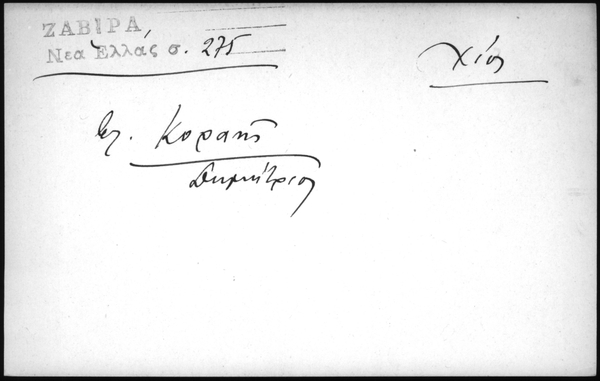 ΖΑΒΙΡΑ,
Νεα Ελλας σ. 275
Χίος
Κοραης
Δημήτριος